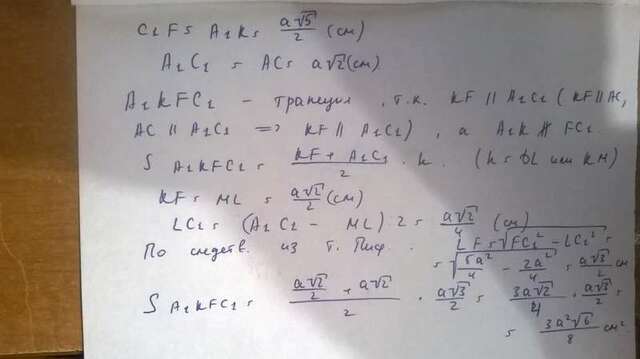 C₁F = A₁K = a√5/2 (см)
A₁C₁ = AC = a√2 (см)
A₁KFC₁ - трапеция, т.к. KF || A₁C₁ (KF || AC,
AC || A₁C₁ => KF || A₁C₁), а A₁K ∦ FC₁.
S A₁KFC₁ = (KF + A₁C₁)/2 · h. (h = FL или KM)
KF = ML = a√2/2 (см)
LC₁ = (A₁C₁ - ML) : 2 = a√2/4 (см)
По следств. из т. Пиф. LF = √(FC₁² - LC₁²) =
= √(5a²/4 - 2a²/4) = a√3/2 см
S A₁KFC₁ = (a√2/2 + a√2)/2 · a√3/2 = 3a√2/4 · a√3/2 =
= 3a²√6/8 см²